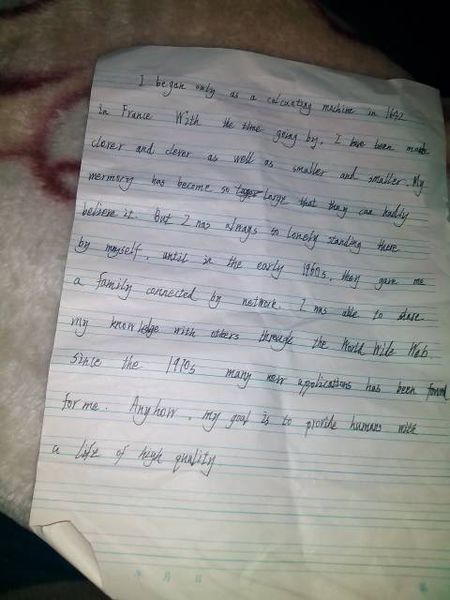 I began only as a calculating machine in 1642
in France With the time going by, I have been made
clever and clever as well as smaller and smaller. My
mermory has become so large that they can hadly
believe it. But I was always so lonely standing there
by myself, until in the early 1960s, they gave me
a family connected by network. I was able to share
my knowledge with others through the World Wile Web
since the 1970s many new applications has been found
for me. Anyhow, my goal is to provide humans with
a life of high quality
年 月 日